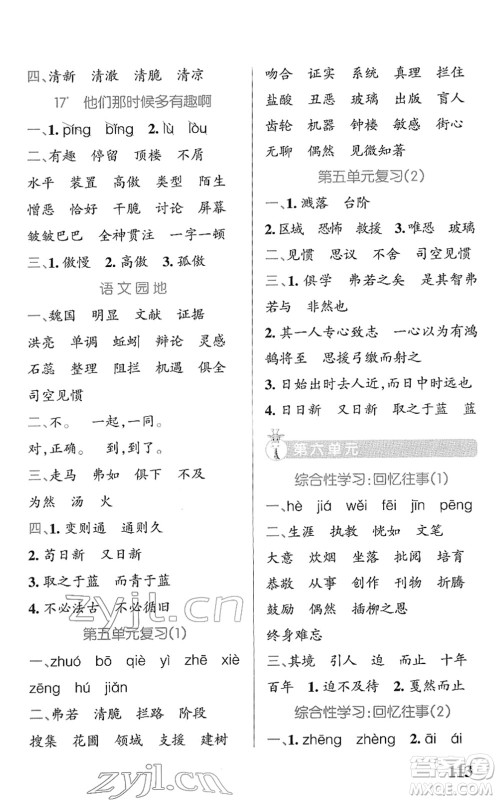 四、清新 清澈 清脆 清凉
17* 他们那时候多有趣啊
一、1. píng bǐng 2. lù lòu
二、有趣 停留 顶楼 不屑
水平 装置 高傲 类型 陌生
憎恶 恰好 干脆 讨论 屏幕
皱皱巴巴 全神贯注 一字一顿
三、1. 傲慢 2. 高傲 3. 孤傲
语文园地
一、魏国 明显 文献 证据
洪亮 单调 蚯蚓 辩论 灵感
石蕊 整理 阻拦 机遇 俱全
司空见惯
二、不。 一起,一同。
对,正确。 到,到了。
三、走马 弗如 俱下 不及
为然 汤 火
四、1. 变则通 通则久
2. 苟日新 又日新
3. 取之于蓝 而青于蓝
4. 不必法古 不必循旧
第五单元复习(1)
一、zhuó bō qiè yì zhē xiè
zēng hú jiǎn
二、弗若 清脆 拦路 阶段
搜集 花圃 领域 支援 建树
吻合 证实 系统 真理 拦住
盐酸 丑恶 玻璃 出版 盲人
齿轮 机器 钟楼 敏感 街心
无聊 偶然 见微知著
第五单元复习(2)
一、1. 溅落 台阶
2. 区域 恐怖 救援 3. 唯恐 玻璃
二、见惯 思议 不舍 司空见惯
三、1. 俱学 弗若之矣 是其智弗
若与 非然也
2. 其一人专心致志 一心以为有鸿
鹄将至 思援弓缴而射之
3. 日始出时去人近,而日中时远也
4. 日日新 又日新 取之于蓝 蓝
第六单元
综合性学习:回忆往事(1)
一、hè jiá wěi fēi jīn pēng
二、生涯 执教 恍如 文笔
大意 炊烟 坐落 批阅 培育
恭敬 从事 创作 卡片 折腾
鼓励 偶然 插柳之恩
终身难忘
三、其境 引人 迫 而止 十年
百年 1. 迫不及待 2. 戛然而止
综合性学习:回忆往事(2)
一、1. zhēng zhèng 2. āi ái
113
zyjl.cn
zyjl.cn
答案圈
MXQE.COM